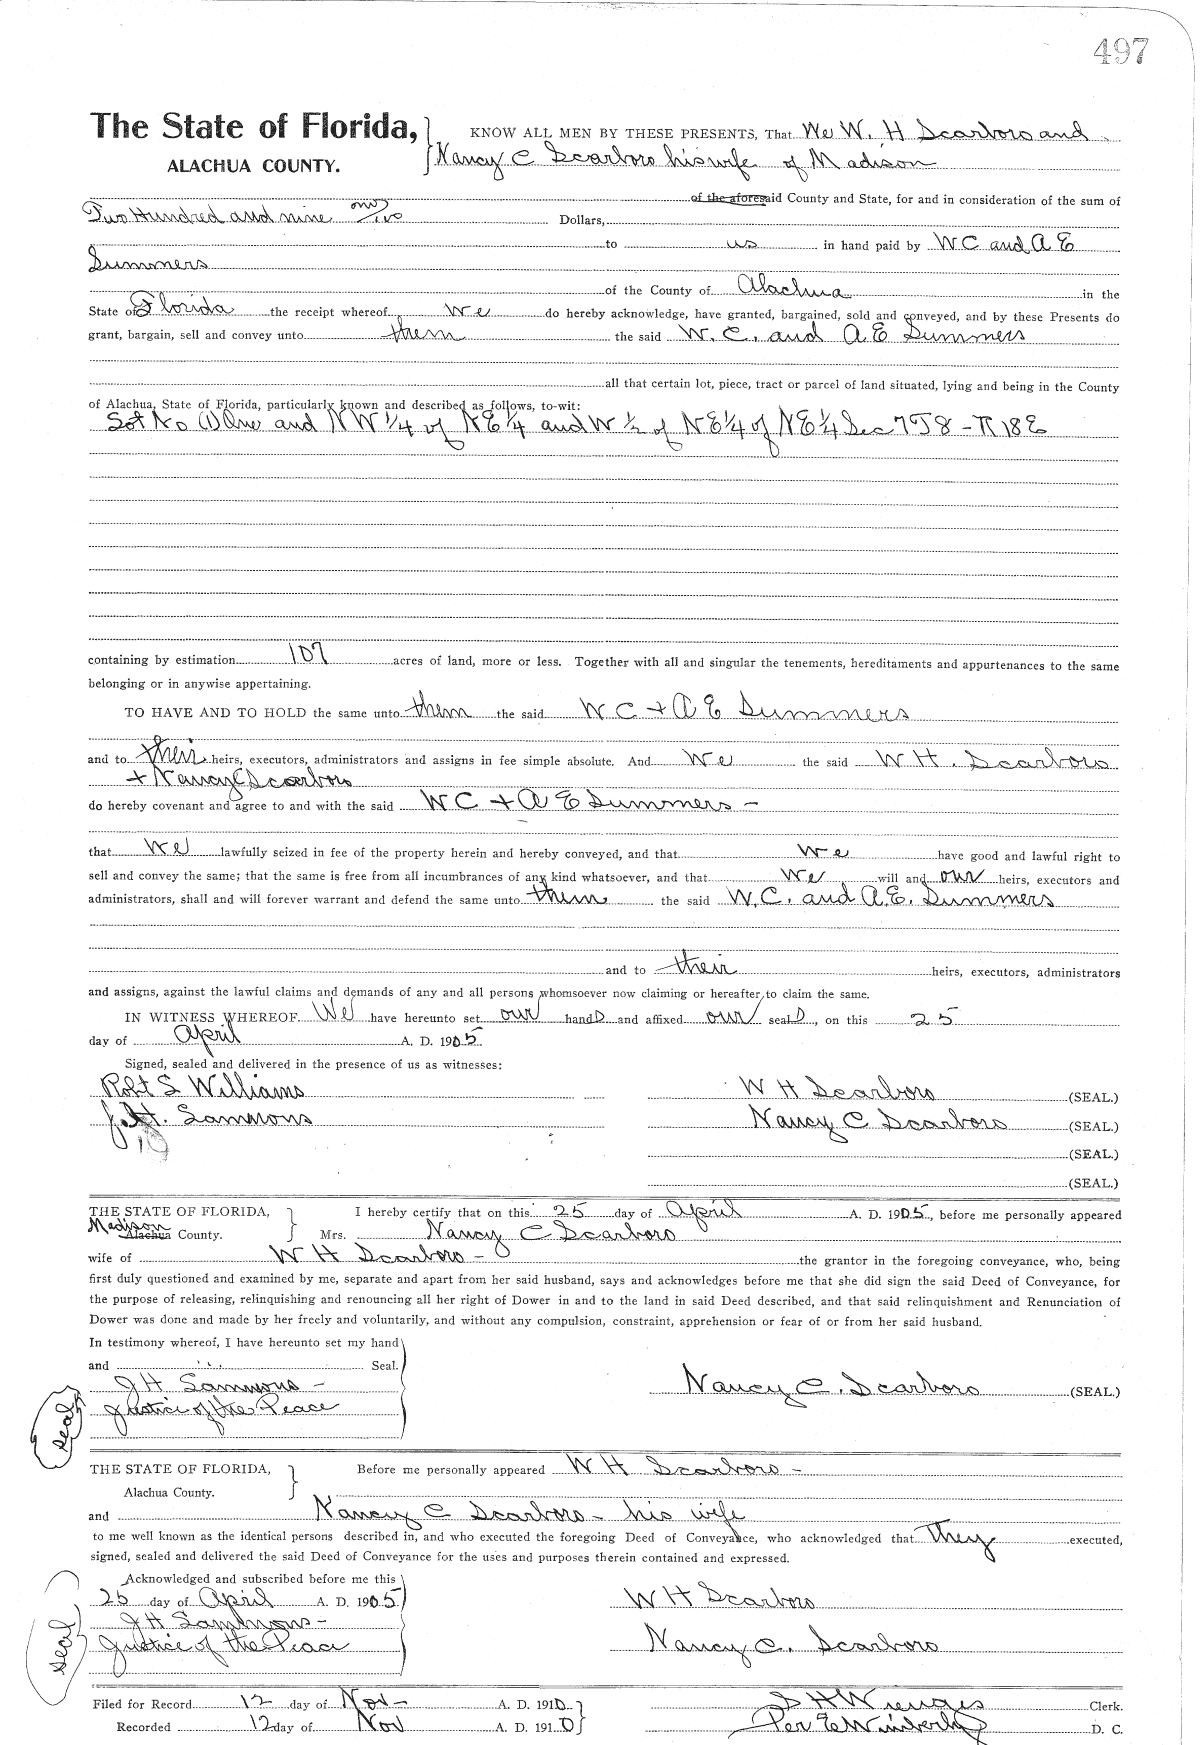 497
The State of Florida, KNOW ALL MEN BY THESE PRESENTS, That We W. H Scarboro and
ALACHUA COUNTY. Nancy C Scarboro his wife of Madison
of the aforesaid County and State, for and in consideration of the sum of
Two Hundred and nine no/100 Dollars,
to us in hand paid by W C and A E
Summers
of the County of Alachua in the
State of Florida the receipt whereof we do hereby acknowledge, have granted, bargained, sold and conveyed, and by these Presents do
grant, bargain, sell and convey unto them the said W. C. and A E Summers
all that certain lot, piece, tract or parcel of land situated, lying and being in the County
of Alachua, State of Florida, particularly known and described as follows, to-wit:
Lot No (1) One and NW 1/4 of NE 1/4 and W 1/2 of NE 1/4 of NE 1/4 Sec 7 T 8 - R 18 E
containing by estimation 107 acres of land, more or less. Together with all and singular the tenements, hereditaments and appurtenances to the same
belonging or in anywise appertaining.
TO HAVE AND TO HOLD the same unto them the said W C + A E Summers
and to their heirs, executors, administrators and assigns in fee simple absolute. And We the said W H. Scarboro
+ Nancy C Scarboro
do hereby covenant and agree to and with the said W C + A E Summers -
that we lawfully seized in fee of the property herein and hereby conveyed, and that we have good and lawful right to
sell and convey the same; that the same is free from all incumbrances of any kind whatsoever, and that we will and our heirs, executors and
administrators, shall and will forever warrant and defend the same unto them the said W. C. and A. E. Summers
and to their heirs, executors, administrators
and assigns, against the lawful claims and demands of any and all persons whomsoever now claiming or hereafter to claim the same.
IN WITNESS WHEREOF We have hereunto set our hands and affixed our seals, on this 25
day of April A. D. 1905
Signed, sealed and delivered in the presence of us as witnesses:
Robt S Williams W H Scarboro (SEAL.)
J. H. Sammons Nancy C Scarboro (SEAL.)
(SEAL.)
(SEAL.)
THE STATE OF FLORIDA, I hereby certify that on this 25 day of April A. D. 1905, before me personally appeared
Madison Alachua County. Mrs. Nancy C Scarboro
wife of W H Scarboro - the grantor in the foregoing conveyance, who, being
first duly questioned and examined by me, separate and apart from her said husband, says and acknowledges before me that she did sign the said Deed of Conveyance, for
the purpose of releasing, relinquishing and renouncing all her right of Dower in and to the land in said Deed described, and that said relinquishment and Renunciation of
Dower was done and made by her freely and voluntarily, and without any compulsion, constraint, apprehension or fear of or from her said husband.
In testimony whereof, I have hereunto set my hand
and Seal.
J H Sammons - Nancy C. Scarboro (SEAL.)
Justice of the Peace
Seal
THE STATE OF FLORIDA, Before me personally appeared W H Scarboro -
Alachua County.
and Nancy C Scarboro - his wife
to me well known as the identical persons described in, and who executed the foregoing Deed of Conveyance, who acknowledged that they executed,
signed, sealed and delivered the said Deed of Conveyance for the uses and purposes therein contained and expressed.
Acknowledged and subscribed before me this
25 day of April A. D. 1905 W H Scarboro
J H Sammons -
Justice of the Peace Nancy C. Scarboro
Seal
Filed for Record 12 day of Nov - A. D. 1910 S H Wienges Clerk.
Recorded 12 day of Nov A. D. 1910 Per E Wimberly D. C.